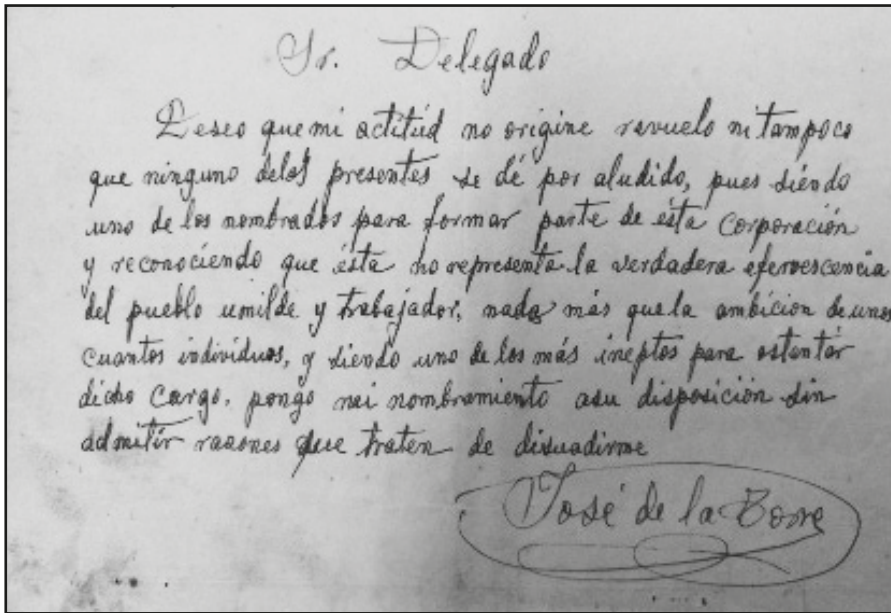 Sr. Delegado
Deseo que mi actitúd no origine revuelo ni tampoco
que ninguno delos presentes se dé por aludido, pues siendo
uno de los nombrados para formar parte de ésta Corporación
y reconociendo que ésta no representa la verdadera efervescencia
del pueblo umilde y trabajador, nada más que la ambición de unos
cuantos individuos, y siendo uno de los más ineptos para ostentár
dicho Cargo, pongo mi nombramiento asu disposición sin
admitír razones que traten de disuadirme
José de la Torre